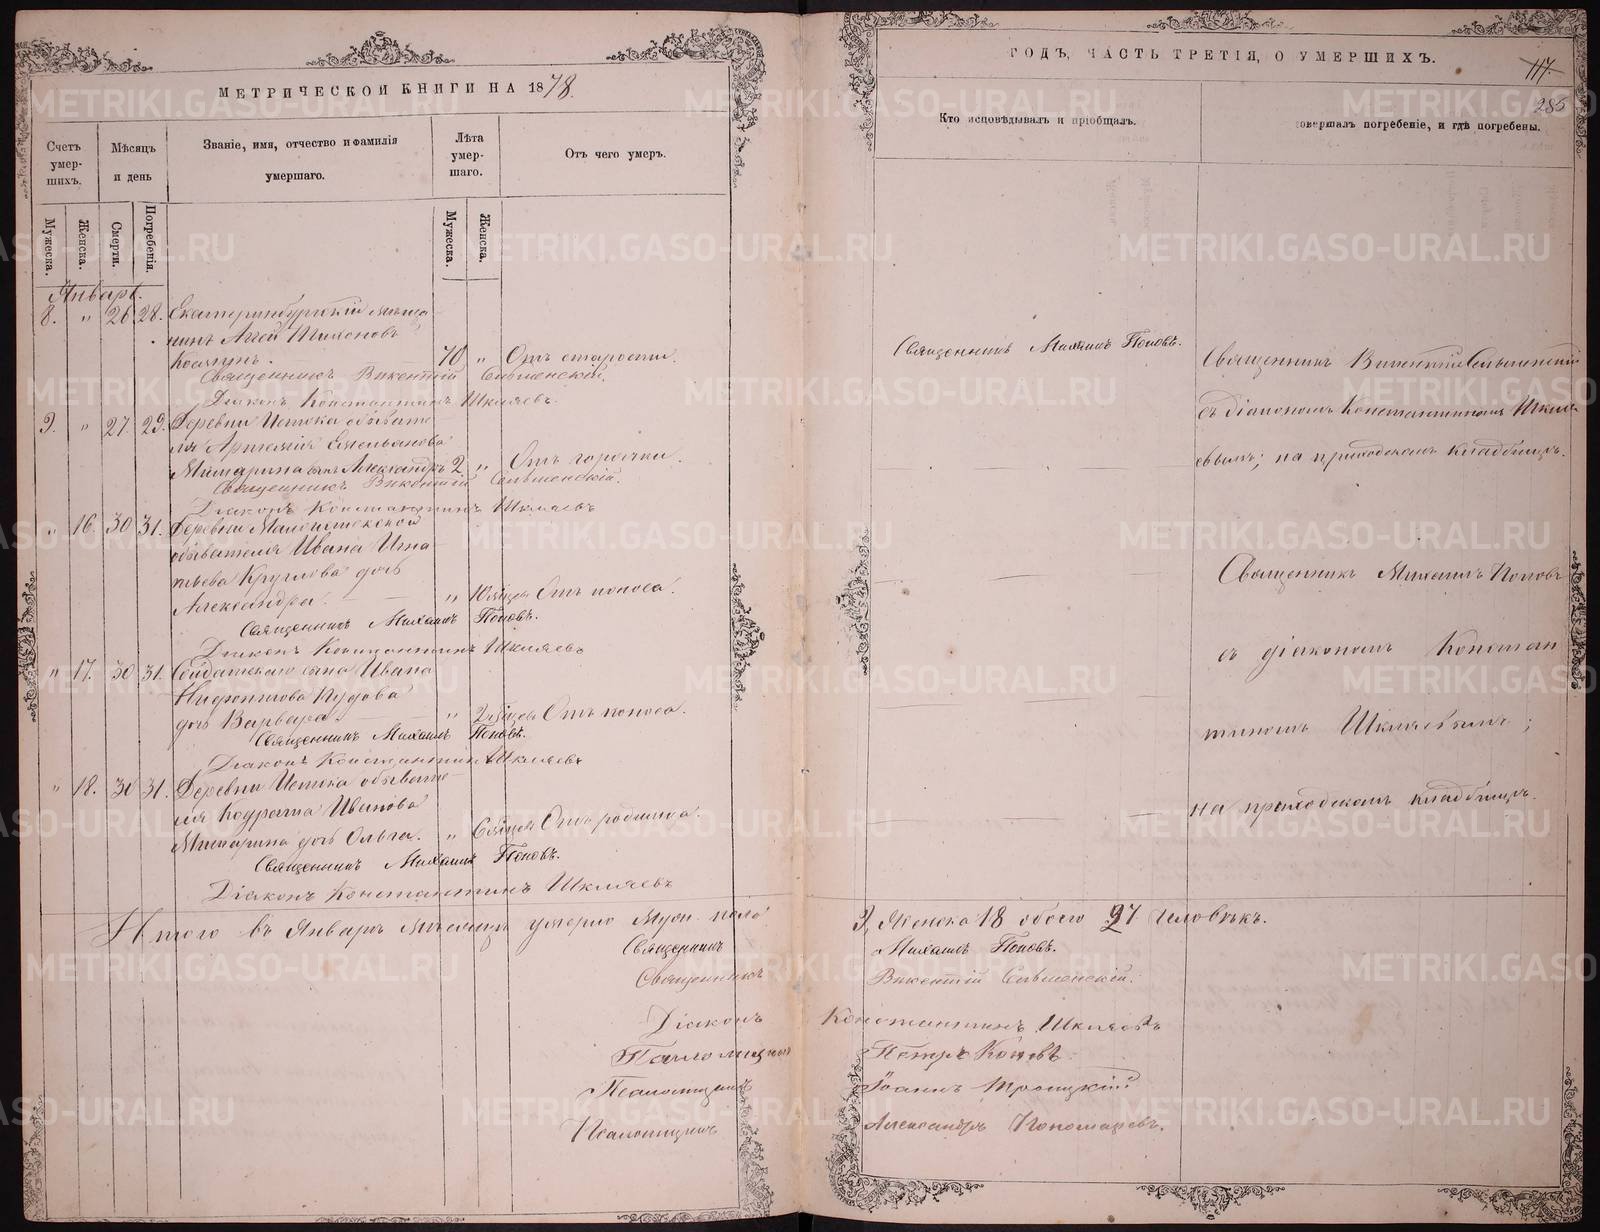 МЕТРИЧЕСКОЙ КНИГИ НА 1878.
Счетъ умер-шихъ.
Мѣсяцъ и день
Званіе, имя, отчество и фамилія умершаго.
Лѣта умер-шаго.
Отъ чего умеръ.
Мужеска.
Женска.
Смерти.
Погребенія.
Мужеска.
Женска.
Январь.
8. " 26 28. Екатеринбургскій мѣща
нинъ Агей Тихоновъ
70 " Отъ старости.
Священникъ Викентій
Діаконъ Константинъ Шкляевъ.
9. " 27. 29. Деревни Истока обывате
ля Артемія Емельянова
сынъ Александръ 2 " Отъ горячки.
Священникъ Викентій
Діаконъ Константинъ Шкляевъ
" 16. 30 31. Деревни
обывателя Ивана Игна
тьева Круглова дочь
Александра. " Отъ поноса.
Священникъ Михаилъ Поповъ.
Діаконъ Константинъ Шкляевъ
" 17. 30 31. Солдатскаго сына Ивана
дочь Варвара. " Отъ поноса.
Священникъ Михаилъ Поповъ.
Діаконъ Константинъ Шкляевъ
" 18. 31. Деревни Истока обывате
ля Кодрата Иванова
дочь Ольга. " Отъ родимца.
Священникъ Михаилъ Поповъ.
Діаконъ Константинъ Шкляевъ
Итого въ Январѣ мѣсяцѣ умерло Муж. пола
Священникъ
Священникъ
Діаконъ
Псаломщикъ
Псаломщикъ
Псаломщикъ
ГОДЪ, ЧАСТЬ ТРЕТІЯ, О УМЕРШИХЪ.
117.
285
Кто исповѣдывалъ и пріобщалъ.
совершалъ погребеніе, и гдѣ погребены.
Священникъ Михаилъ Поповъ.
Священникъ Викентій
съ діакономъ Константиномъ Шкля
евымъ; на приходскомъ кладбищѣ.
Священникъ Михаилъ Поповъ
съ діакономъ Констан
тиномъ Шкляевымъ;
на приходскомъ кладбищѣ.
9, Женска 18 обоего 27 человѣкъ.
Михаилъ Поповъ.
Викентій
Константинъ Шкляевъ
Петръ
Іоаннъ Троицкій
Александръ Пономаревъ.
METRIKI.GASO-URAL.RU